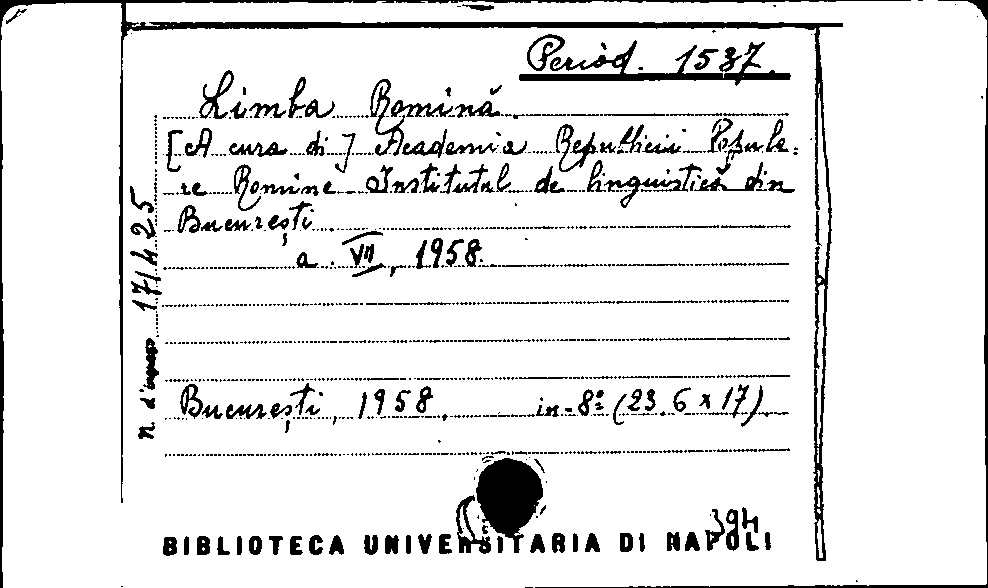 Period. 1537.
Limba Romină.
[A cura di] Academia Republicii Popula=
re Romine Institutul de linguistică din
București
a. VII, 1958.
București, 1958. in-8º (23.6 x 17).
n. d'ingresso 171425
394
BIBLIOTECA UNIVERSITARIA DI NAPOLI